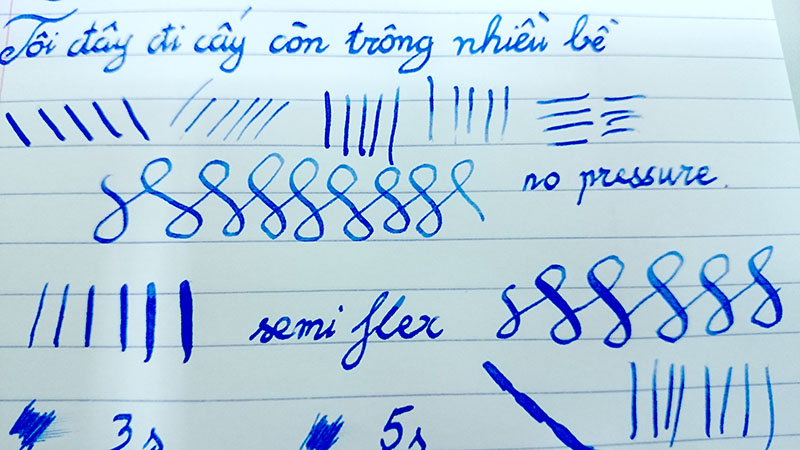 Tôi đây đi cấy còn trông nhiều bề
no pressure.
semi flex
3s
5s